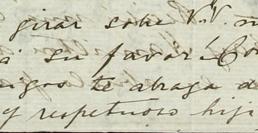 girar sobre V.V.
á su favor. Con
te abraza
y respetuoso hijo